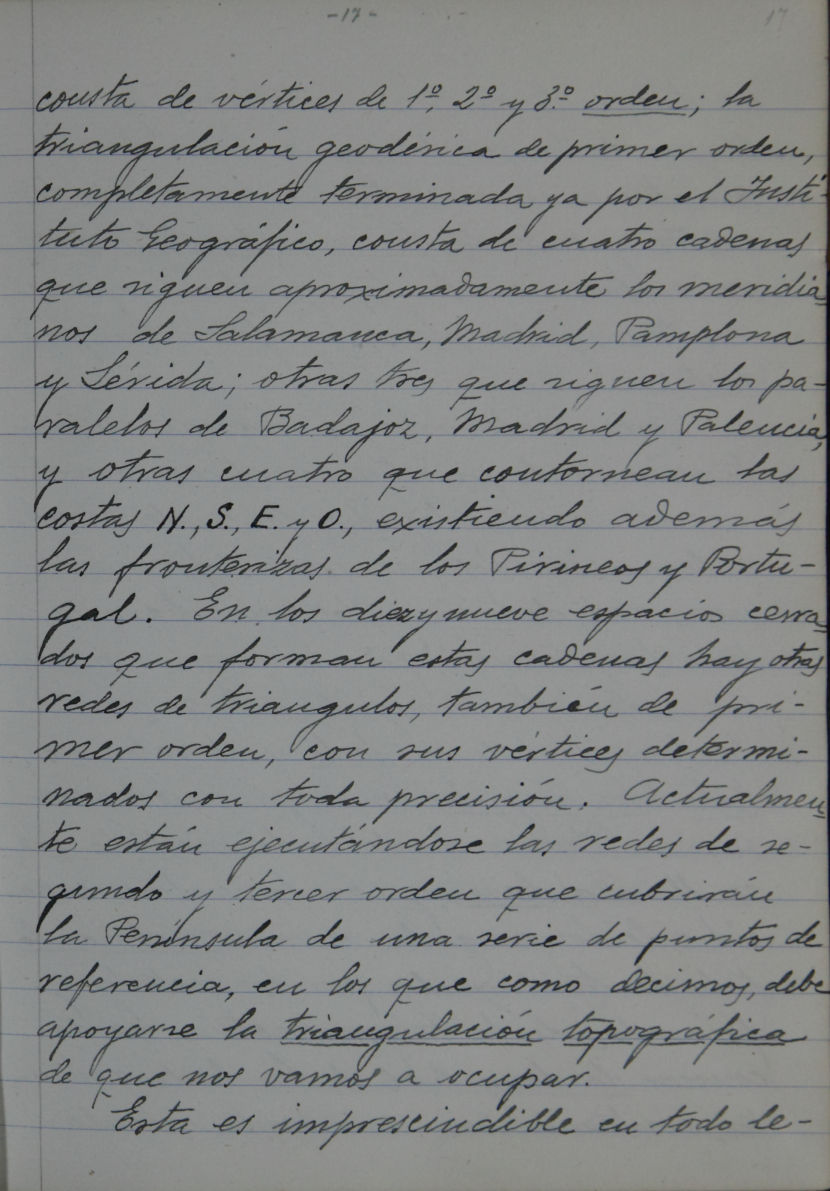 -17-
17
consta de vértices de 1º, 2º y 3º orden; la
triangulación geodésica de primer orden,
completamente terminada ya por el Insti-
tuto Geográfico, consta de cuatro cadenas
que siguen aproximadamente los meridia-
nos de Salamanca, Madrid, Pamplona
y Lérida; otras tres que siguen los pa-
ralelos de Badajoz, Madrid y Palencia,
y otras cuatro que contornean las
costas N., S., E. y O., existiendo además
las fronterizas de los Pirineos y Portu-
gal. En los diez y nueve espacios cerra-
dos que forman estas cadenas hay otras
redes de triangulos, también de pri-
mer orden, con sus vértices determi-
nados con toda precisión. Actualmen-
te están ejecutándose las redes de se-
gundo y tercer orden que cubrirán
la Península de una serie de puntos de
referencia, en los que como decimos, debe
apoyarse la triangulación topográfica
de que nos vamos a ocupar.
Esta es imprescindible en todo le-